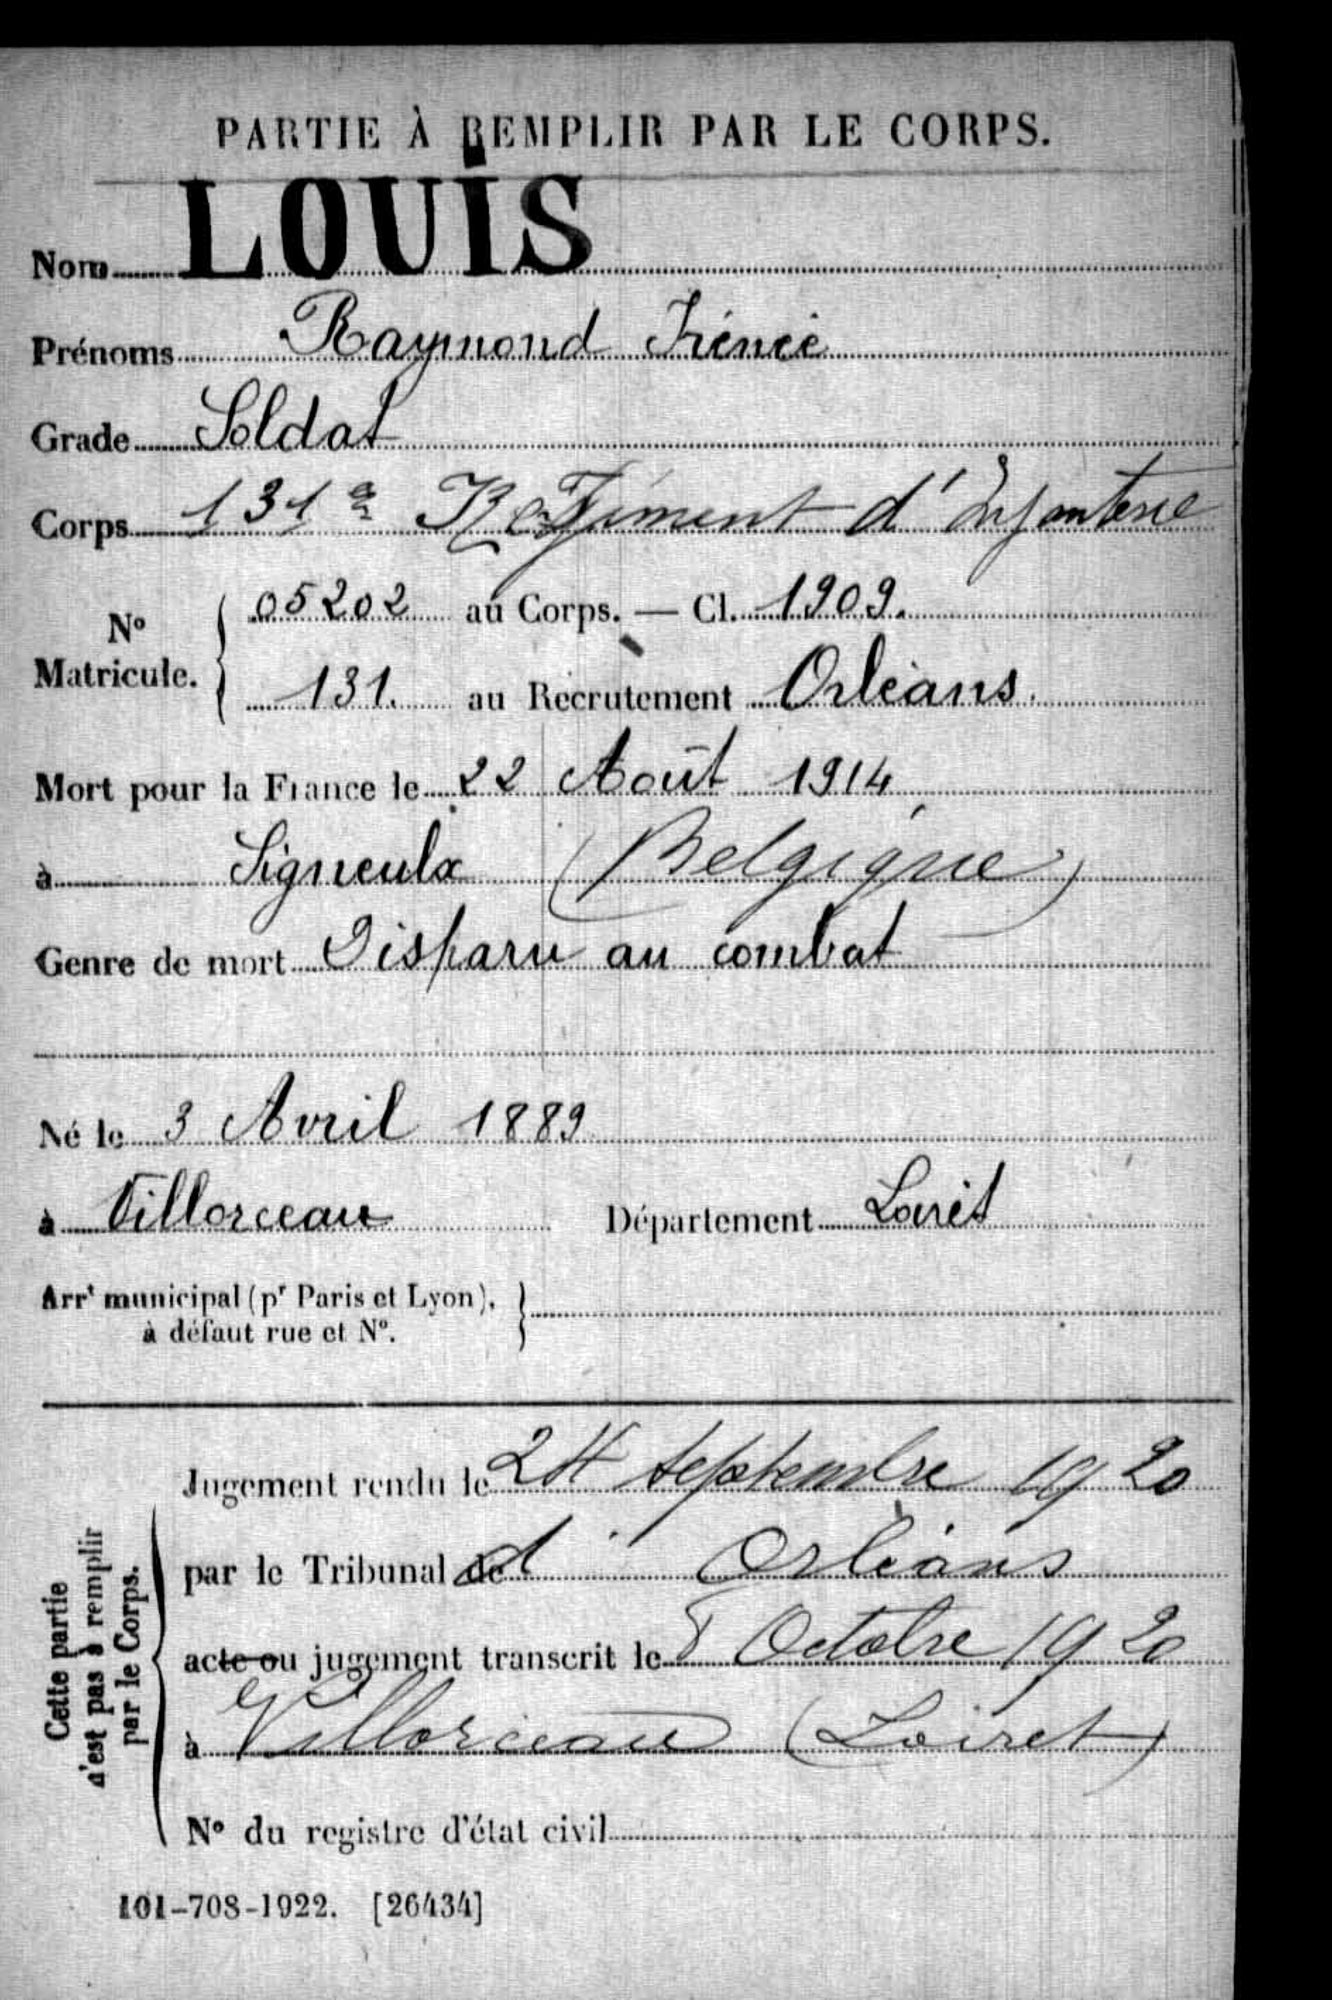 PARTIE À REMPLIR PAR LE CORPS.
Nom LOUIS
Prénoms Raymond Irénée
Grade Soldat
Corps 131e Régiment d'Infanterie
N° Matricule. 05202 au Corps. — Cl. 1909.
131. au Recrutement Orléans.
Mort pour la France le 22 Août 1914
à Signeulx (Belgique)
Genre de mort Disparu au combat
Né le 3 Avril 1889
à Villorceau Département Loiret
Arrt municipal (pr Paris et Lyon),
à défaut rue et N°.
Cette partie
n'est pas à remplir
par le Corps.
Jugement rendu le 24 septembre 1920
par le Tribunal de d' Orléans
acte ou jugement transcrit le 8 Octobre 1920
à Villorceau (Loiret)
N° du registre d'état civil
101-708-1922. [26434]